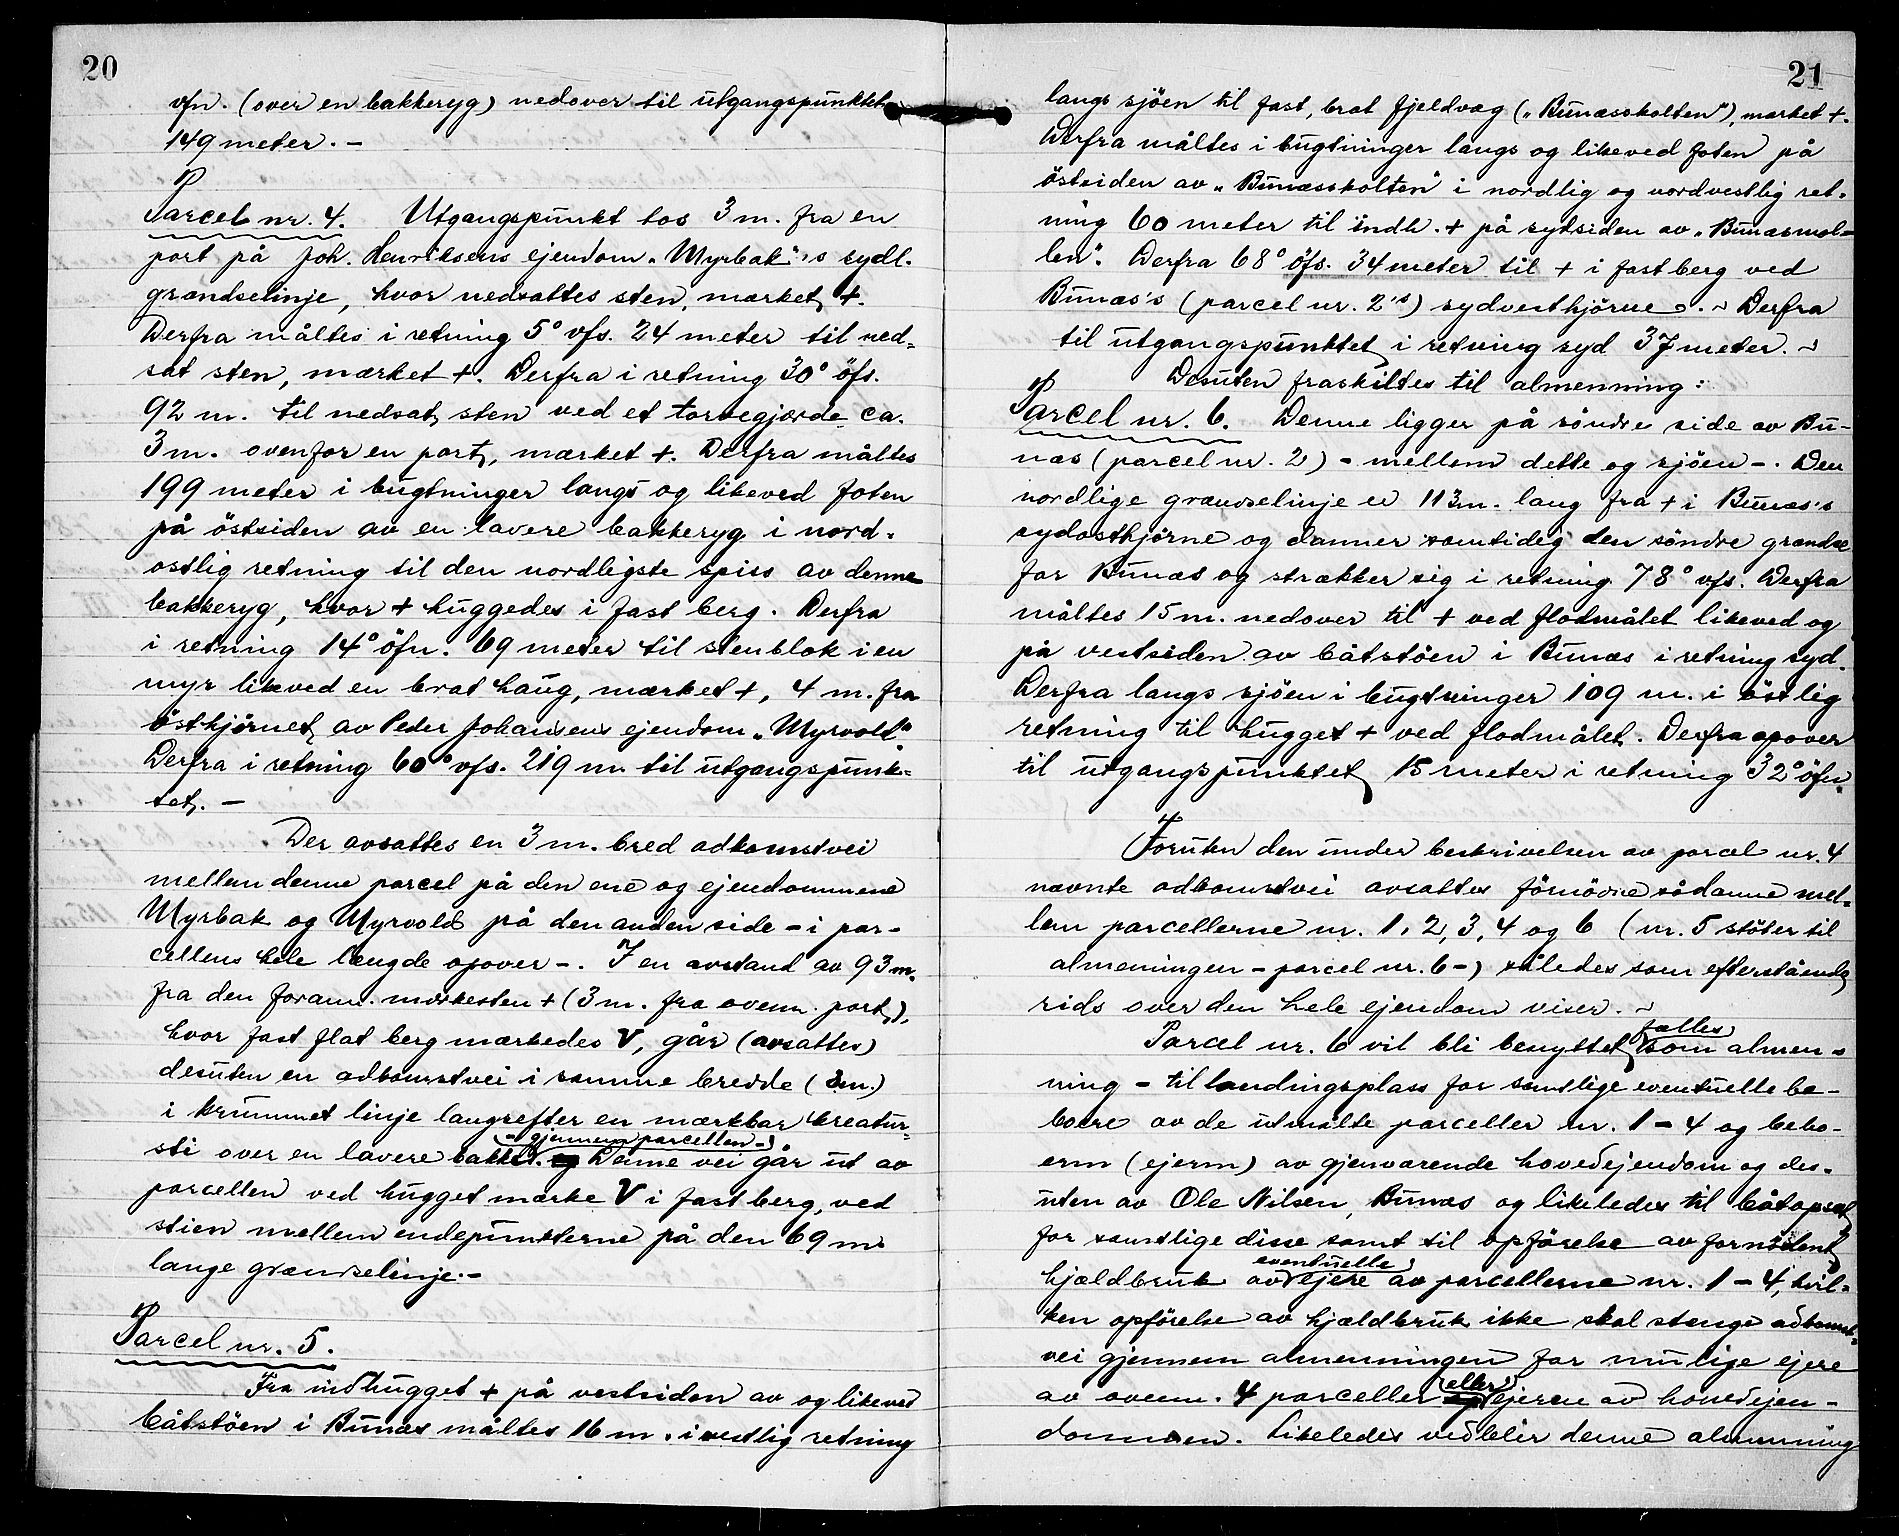 20
vfn. (over en bakkeryg) nedover til utgangspunktet
149 meter. –
Parcel nr. 4. Utgangspunkt tos 3 m. fra en
port på Joh. Henriksens ejendom „Myrbak"s sydl.
grændselinje, hvor nedsattes sten, mærket +.
Derfra måltes i retning 5° vfs. 24 meter til ned-
sat sten, mærket +. Derfra i retning 30° öfs.
92 m. til nedsat sten ved et torvegjærde ca.
3 m. ovenfor en port, mærket +. Derfra måltes
199 meter i bugtninger langs og likeved foten
på östsiden av en lavere bakkeryg i nord-
ostlig retning til den nordligste spiss av denne
bakkeryg, hvor + huggedes i fast berg. Derfra
i retning 14° öfn. 69 meter til stenblok i en
myr likeved en brat haug, mærket +, 4 m. fra
östhjörnet av Peder Johansens ejendom „Myrvold".
Derfra i retning 60° vfs. 219 m. til utgangspunk-
tet. –
Der avsattes en 3 m. bred adkomstvei
mellem denne parcel på den ene og ejendommene
Myrbak og Myrvold på den anden side – i par-
cellens hele længde opover –. I en avstand av 93 m.
fra den forann. mærkesten + (3 m. fra ovenn. port),
hvor fast flat berg mærkedes V, går (avsattes)
desuten en adkomstvei i samme bredde (3 m.)
i krummet linje langsefter en mærkbar kreatur-
– gjennem parcellen –
sti over en lavere bakke. Denne vei går ut av
parcellen ved hugget mærke V i fast berg, ved
stien mellem endepunkterne på den 69 m.
lange grændselinje. –
Parcel nr. 5.
Fra indhugget + på vestsiden av og likeved
båtstöen i Bunæs måltes 16 m. i vestlig retning
21
langs sjöen til fast, brat fjeldvæg („Bunæsskolten"), mærket +.
Derfra måltes i bugtninger langs og likeved foten på
östsiden av „Bunæsskolten" i nordlig og nordvestlig ret-
ning 60 meter til indh. + på sydsiden av „Bunæsmol-
len". Derfra 68° öfs. 34 meter til + i fast berg ved
Bunæs's (parcel nr. 2's) sydvesthjörne. – Derfra
til utgangspunktet i retning syd 37 meter. –
Desuten fraskiltes til almenning:
Parcel nr. 6. Denne ligger på söndre side av Bu-
næs (parcel nr. 2) – mellem dette og sjöen –. Den
nordlige grændselinje er 113 m. lang fra + i Bunæs's
sydosthjörne og danner samtidig den söndre grændse
for Bunæs og strækker sig i retning 78° vfs. Derfra
måltes 15 m. nedover til + ved flodmålet likeved og
på vestsiden av båtstöen i Bunæs i retning syd.
Derfra langs sjöen i bugtninger 109 m. i östlig
retning til hugget + ved flodmålet. Derfra opover
til utgangspunktet 15 meter i retning 32° öfn.
Foruten den under beskrivelsen av parcel nr. 4
nævnte adkomstvei avsattes förnödne sådanne mel-
lem parcellerne nr. 1, 2, 3, 4 og 6 (nr. 5 stöter til
almeningen – parcel nr. 6 –) således som efterstående
rids over den hele ejendom viser. –
fælles
Parcel nr. 6 vil bli benyttet som almen-
ning – til landingsplass for samtlige eventuelle be-
boere av de utmålte parceller nr. 1 – 4 og bebo-
erm (ejerm) av gjenværende hovedejendom og des-
uten av Ole Nilsen, Bunæs og likeledes til båtopsæt
for samtlige disse samt til opförelse av fornödent
eventuelle
hjældbruk av ejere av parcellerne nr. 1 – 4, hvil-
ken opförelse av hjældbruk ikke skal stænge adkomst-
vei gjennem almenningen for mulige ejere
eller
av ovenn. 4 parceller ejeren av hovedejen-
dommen. Likeledes vedblir denne almenning